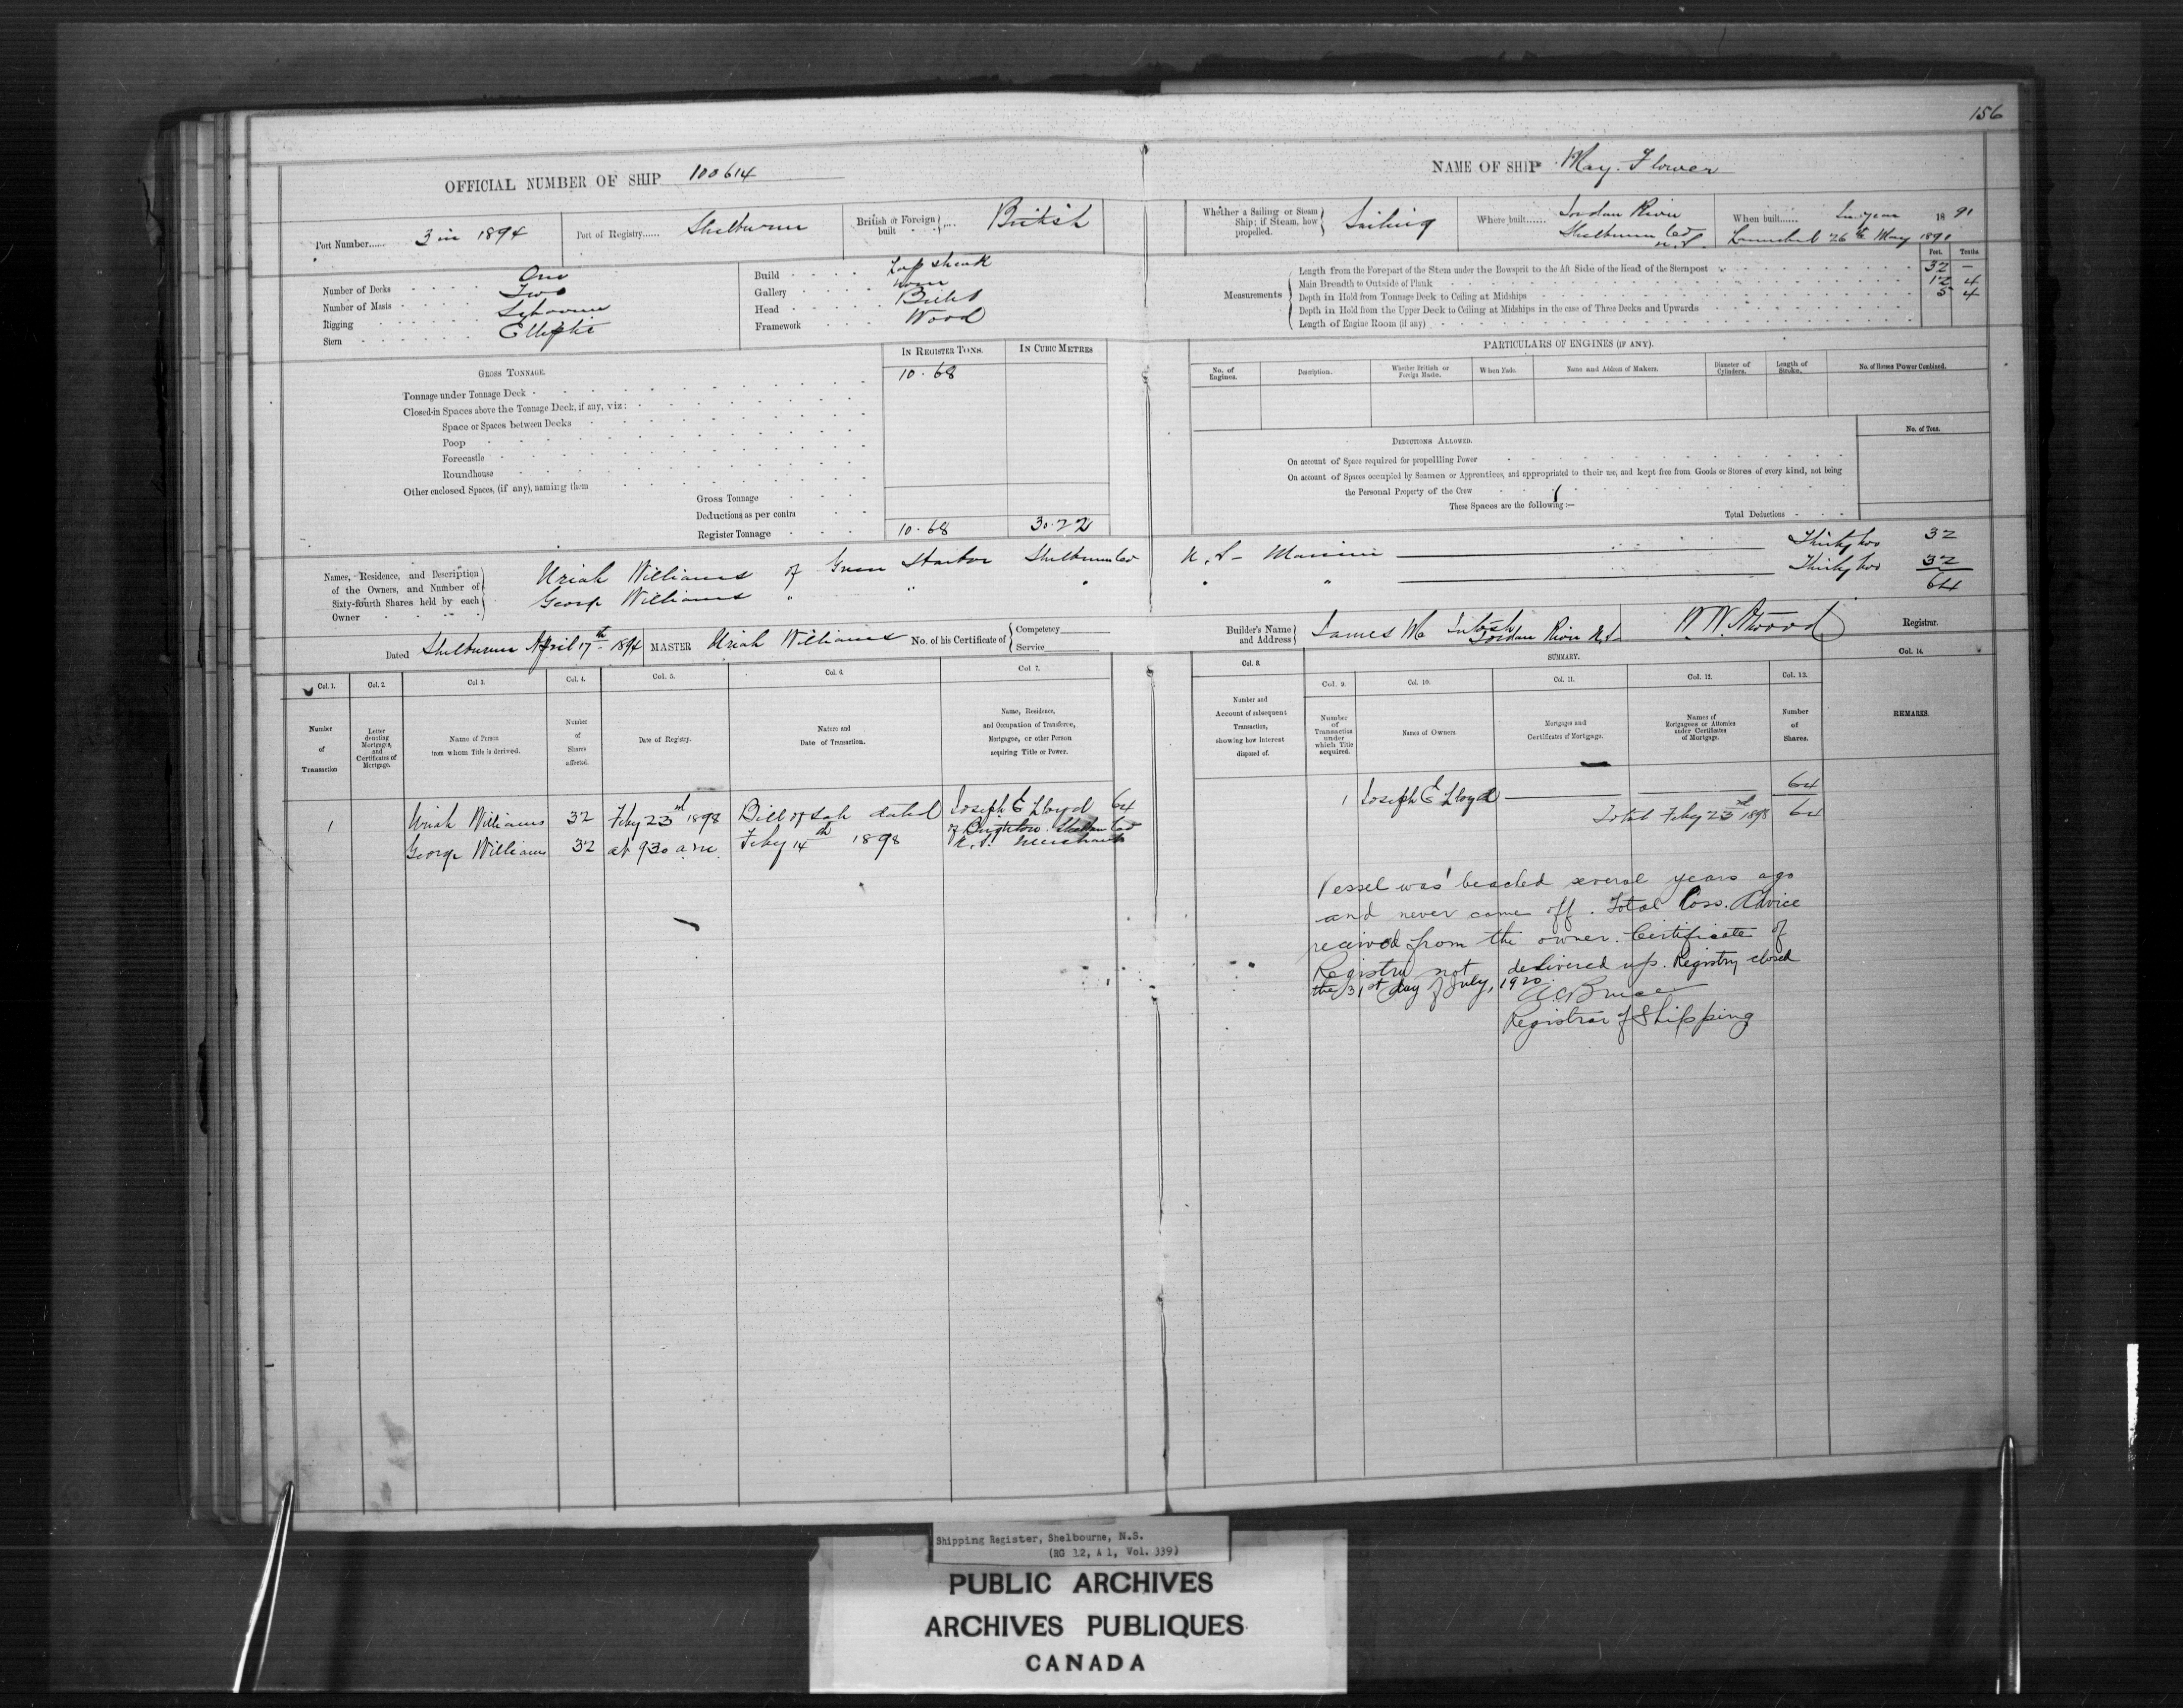 156
OFFICIAL NUMBER OF SHIP 100614
NAME OF SHIP May Flower
Port Number...... 3 in 1894
Port of Registry...... Shelburne
British or Foreign built .... British
Whether a Sailing or Steam Ship; if Steam, how propelled. Sailing
Where built...... Jordan River Shelburne Co N.S.
When built...... In year 1891
Launched 26th May 1891
Number of Decks One
Number of Masts Two
Rigging Schooner
Stern Elliptic
Build Lap streak
Gallery None
Head Billet
Framework Wood
Measurements
Feet. Tenths.
Length from the Forepart of the Stem under the Bowsprit to the Aft Side of the Head of the Sternpost 32 —
Main Breadth to Outside of Plank 12 4
Depth in Hold from Tonnage Deck to Ceiling at Midships 5 4
Depth in Hold from the Upper Deck to Ceiling at Midships in the case of Three Decks and Upwards
Length of Engine Room (if any)
GROSS TONNAGE.
IN REGISTER TONS. IN CUBIC METRES
Tonnage under Tonnage Deck 10.68
Closed-in Spaces above the Tonnage Deck, if any, viz:
Space or Spaces between Decks
Poop
Forecastle
Roundhouse
Other enclosed Spaces, (if any), naming them
Gross Tonnage
Deductions as per contra
Register Tonnage 10.68 30.22
PARTICULARS OF ENGINES (IF ANY).
No. of Engines. Description. Whether British or Foreign Made. When Made. Name and Address of Makers. Diameter of Cylinders. Length of Stroke. No. of Horses Power Combined.
DEDUCTIONS ALLOWED. No. of Tons.
On account of Space required for propelling Power
On account of Spaces occupied by Seamen or Apprentices, and appropriated to their use, and kept free from Goods or Stores of every kind, not being
the Personal Property of the Crew
These Spaces are the following:—
Total Deductions
Names, Residence, and Description of the Owners, and Number of Sixty-fourth Shares held by each Owner
Uriah Williams of Green Harbor Shelburne Co N.S. Mariner Thirty two 32
George Williams " " " " " Thirty two 32
64
Dated Shelburne April 17th 1894 MASTER Uriah Williams No. of his Certificate of Competency Service
Builder's Name and Address James McIntosh Jordan River N.S. W.W. Atwood Registrar.
SUMMARY.
Col. 1. Col. 2. Col. 3. Col. 4. Col. 5. Col. 6. Col. 7. Col. 8. Col. 9. Col. 10. Col. 11. Col. 12. Col. 13. Col. 14.
Number of Transaction
Letter denoting Mortgages, and Certificates of Mortgage.
Name of Person from whom Title is derived.
Number of Shares affected.
Date of Registry.
Nature and Date of Transaction.
Name, Residence, and Occupation of Transferee, Mortgagee, or other Person acquiring Title or Power.
Number and Account of subsequent Transaction, showing how Interest disposed of.
Number of Transaction under which Title acquired.
Names of Owners.
Mortgages and Certificates of Mortgage.
Names of Mortgagees or Attornies under Certificates of Mortgage.
Number of Shares.
REMARKS.
1 Uriah Williams 32 Feby 23rd 1898 Bill of Sale dated Joseph E Lloyd 64
George Williams 32 at 9 30 a.m. Feby 14th 1898 of Brighton Shelburne Co
N.S. Merchant
1 Joseph E Lloyd 64
Total Feby 23rd 1898 64
Vessel was beached several years ago
and never came off. Total loss. Advice
recived from the owner. Certificate of
Registry not delivered up. Registry closed
the 31st day of July, 1920.
A C Bruce
Registrar of Shipping
Shipping Register, Shelbourne, N.S.
(RG 12, A 1, Vol. 339)
PUBLIC ARCHIVES
ARCHIVES PUBLIQUES
CANADA